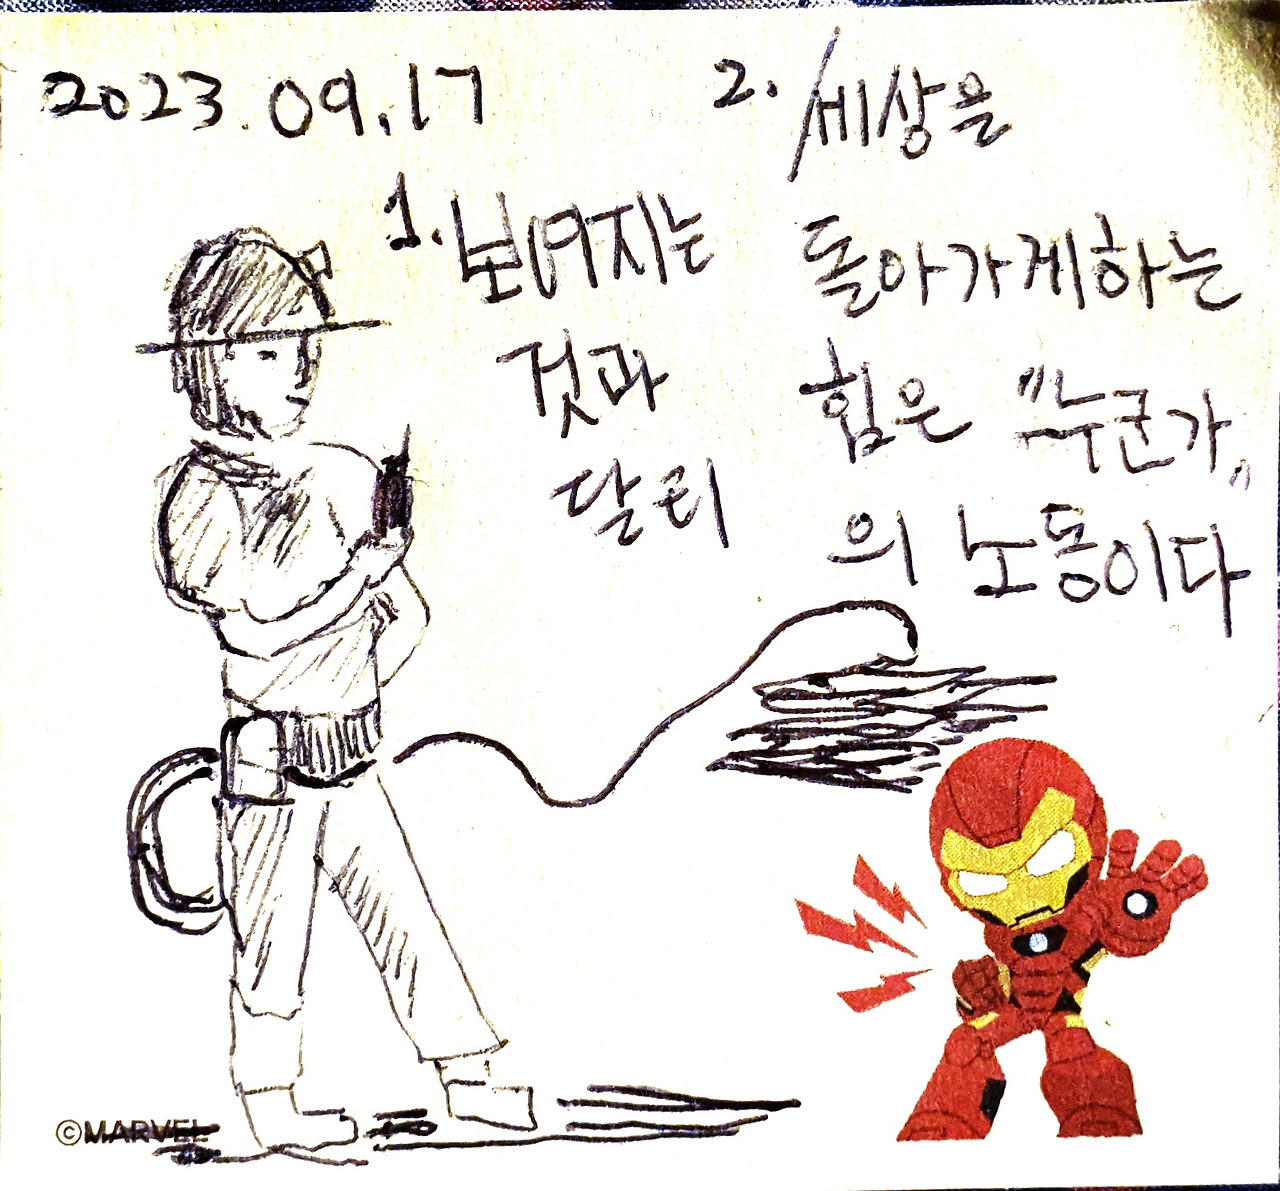 2023.09.17
1. 보여지는
것과
달리
2. 세상을
돌아가게하는
힘은 "누군가"
의 노동이다
©MARVEL